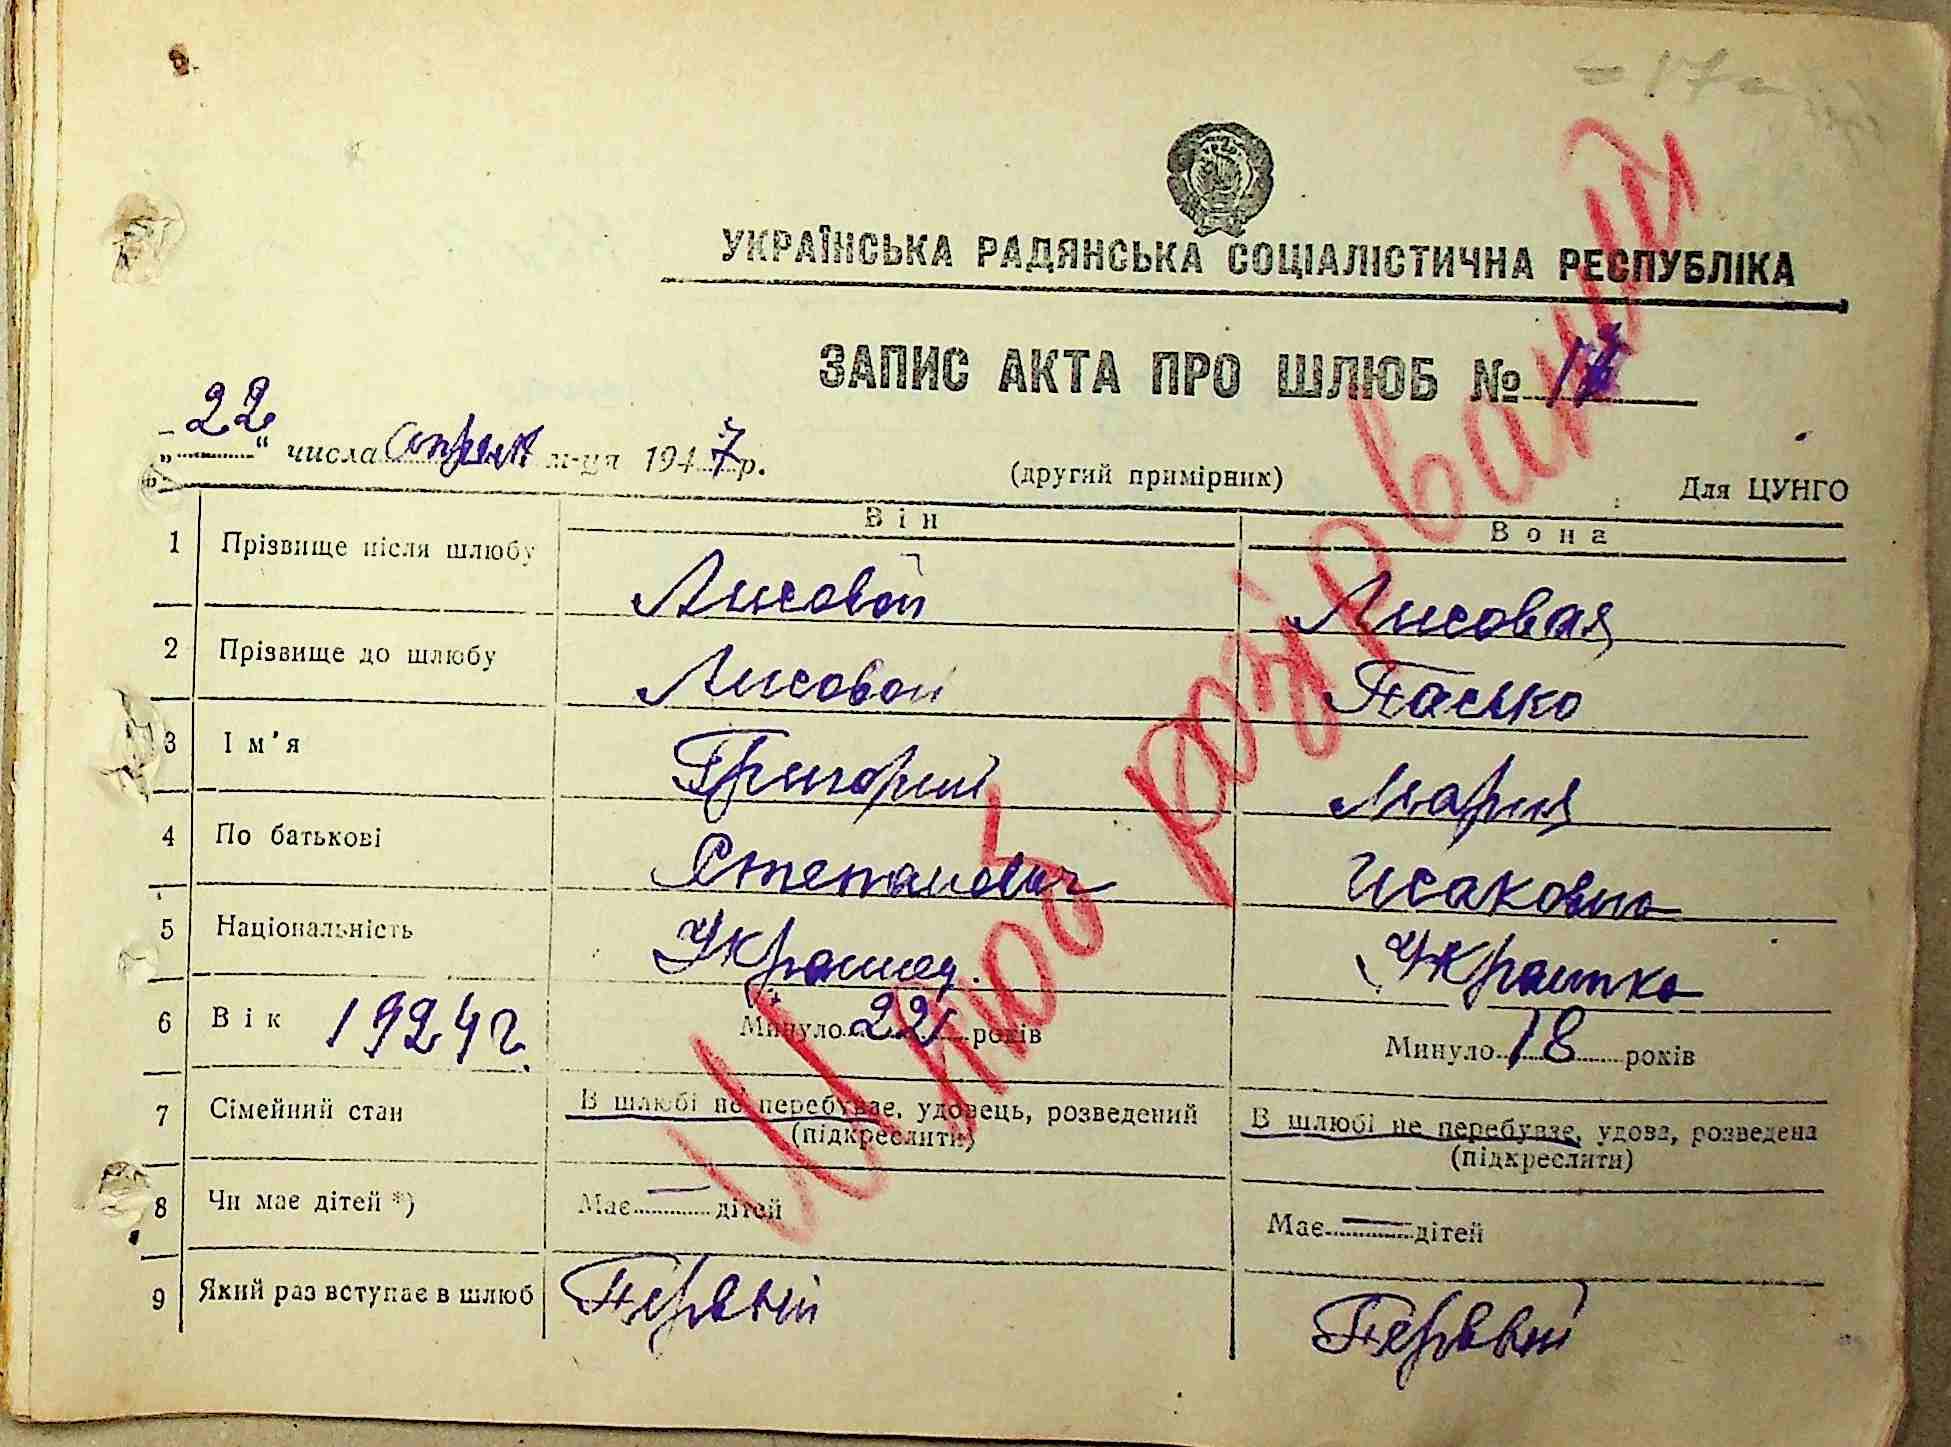 = 17
УКРАЇНСЬКА РАДЯНСЬКА СОЦІАЛІСТИЧНА РЕСПУБЛІКА
ЗАПИС АКТА ПРО ШЛЮБ №
„22“ числа апреля м-ця 1947 р.
(другий примірник)
Для ЦУНГО
Шлюб розірваний
Він Вона
1 Прізвище після шлюбу Лисовой Лисовая
2 Прізвище до шлюбу Лисовой Пасько
3 Ім'я Григорий Мария
4 По батькові Степанович Исаковна
5 Національність Украинец. Украинка
6 Вік 1924 г. Минуло 22 років Минуло 18 років
7 Сімейний стан В шлюбі не перебуває, удовець, розведений В шлюбі не перебуває, удова, розведена
(підкреслити) (підкреслити)
8 Чи має дітей *) Має — дітей Має — дітей
9 Який раз вступає в шлюб Первый Первый